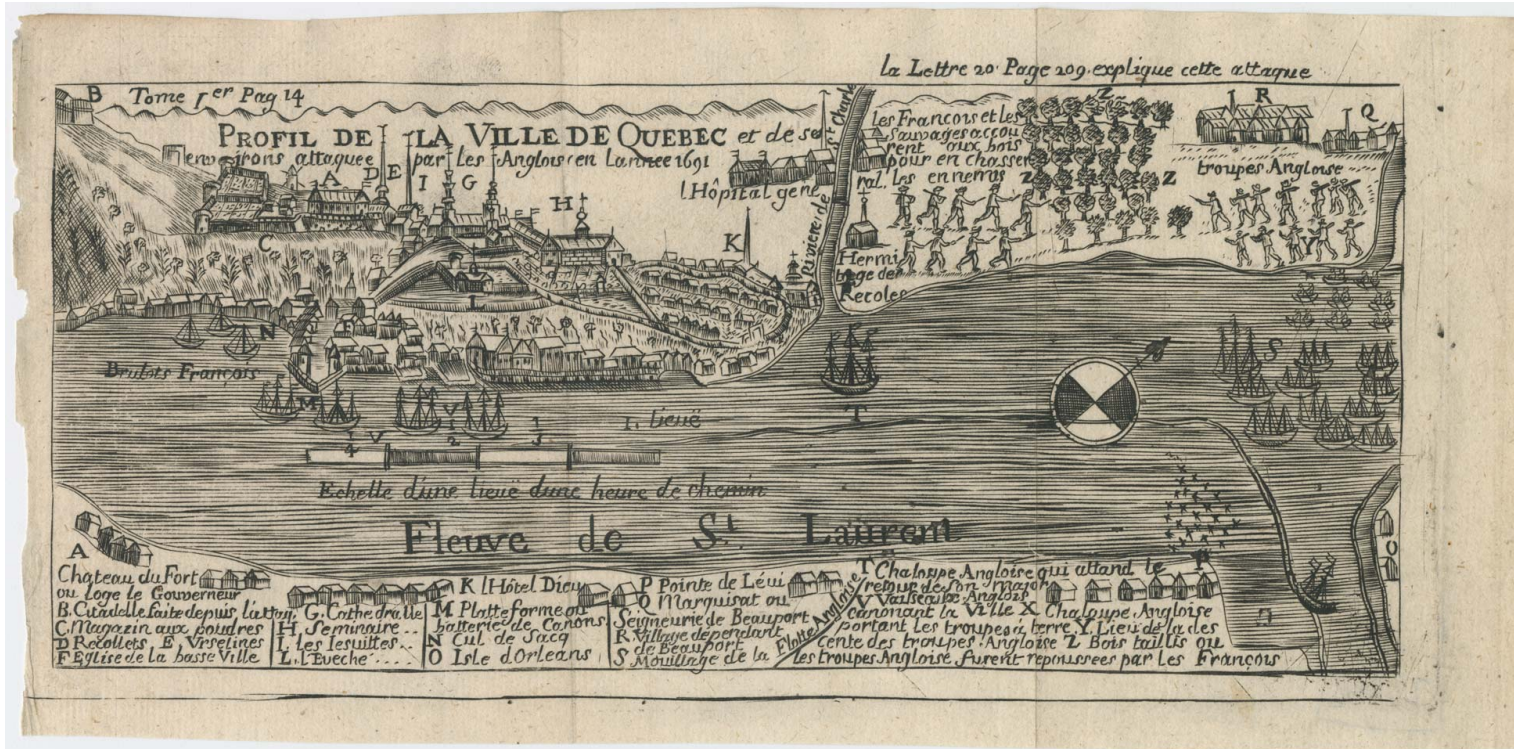 la Lettre 20. Page 209. explique cette attaque
B
Tome I.er Pag 14
PROFIL DE LA VILLE DE QUEBEC et de ses
environs attaquee par les Anglois en Lannee 1691
A
D
E
I
G
H
C
K
L
N
F
M
l'Hôpital gene
ral,
Riviere de St Charle
les Francois et les
Sauvages accou
rent aux bois
pour en chasser
les ennemis
Z
Z
Z
Hermi
tage des
Recoles
R
Q
troupes Angloise
Y
S
T
Brulots François
V
V
1/4
1/2
1/3
1. lieuë
Echelle d'une lieuë dune heure de chemin
Fleuve de St. Laurent
P
O
A
Chateau du Fort
ou loge le Gouverneur
B. Citadelle faite depuis l'attaq.
C. Magazin aux poudres
D Recollets, E, Vrselines
F Eglise de la basse Ville
G. Cathedralle
H. Seminaire..
I. les Iesuittes..
L. l'Eveché....
K l'Hôtel Dieu
M Platte forme ou
batterie de Canons
N Cul de Sacq
O Isle d'Orleans
P Pointe de Lévi
Q Marquisat ou
Seigneurie de Beauport
R Village dependant
de Beauport
S Moüillage de la Flotte Angloise
T Chaloupe Angloise qui attand le
retour de son major
V Vaisseaux Anglois
canonant la Ville X Chaloupe Angloise
portant les troupes á terre, Y. Lieu de la des
cente des troupes Angloise Z Bois taillis ou
les troupes Angloise furent repoussees par les François